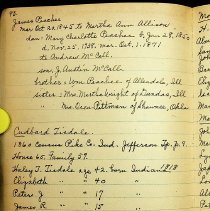 92.
James Beachee
mar. Oct 20, 1845 to Martha Ann Allison
dau - Mary Charlotte Beachee b. Jan 28, 1850
d. Nov. 25, 1938. mar. Oct. 1, 1871
to Andrew McCall.
son. J. Austin McCall.
brother: Wm Beachee of Allendale, Ill
sister: Mrs Martha Knight of Dundas, Ill
" Mrs Grace Pittman of Shawnee, Okla
Cubbard Tisdale.
1860 Census Pike Co. Ind. Jefferson Tp. p. 9.
House 65. Family 59.
Haley T. Tisdale age 42. born Indiana 1818
Elizabeth " 40 "
Peter J. " 17 "
James R " 15 "